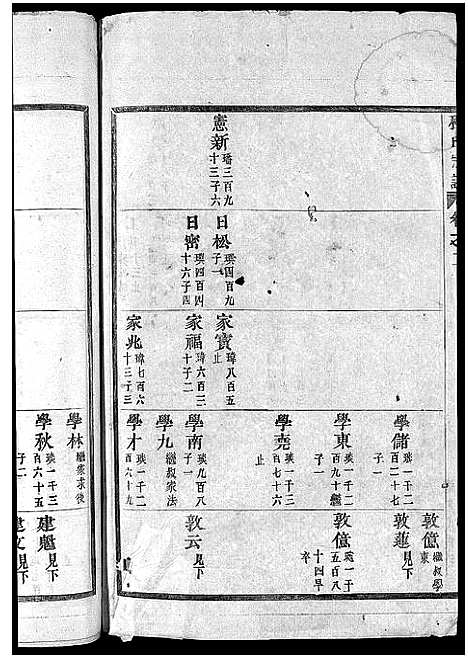 憲新 璠三百九
十三子六
日松 璞四百九
子一
日密 璞四百四
十六子四
家寶 瑋八百五
止
家福 瑋六百二
十子二
家兆 瑋七百六
十三子三
學儲 瑛一千二
百二十七
子一
學東 瑛一千二
百九十繼
子一
學堯 瑛一千三
百七十六
止
學南 瑛九百八
子一
學九 繼叔家法
學才 瑛一千二
百六十九
敦億 繼叔學
東
敦蓮 見下
敦億 一千
五百八
十四早
卒
敦云 見下
學林 繼家求後
學秋 瑛一千三
百六十五
子二
建魁 見下
建文 見下